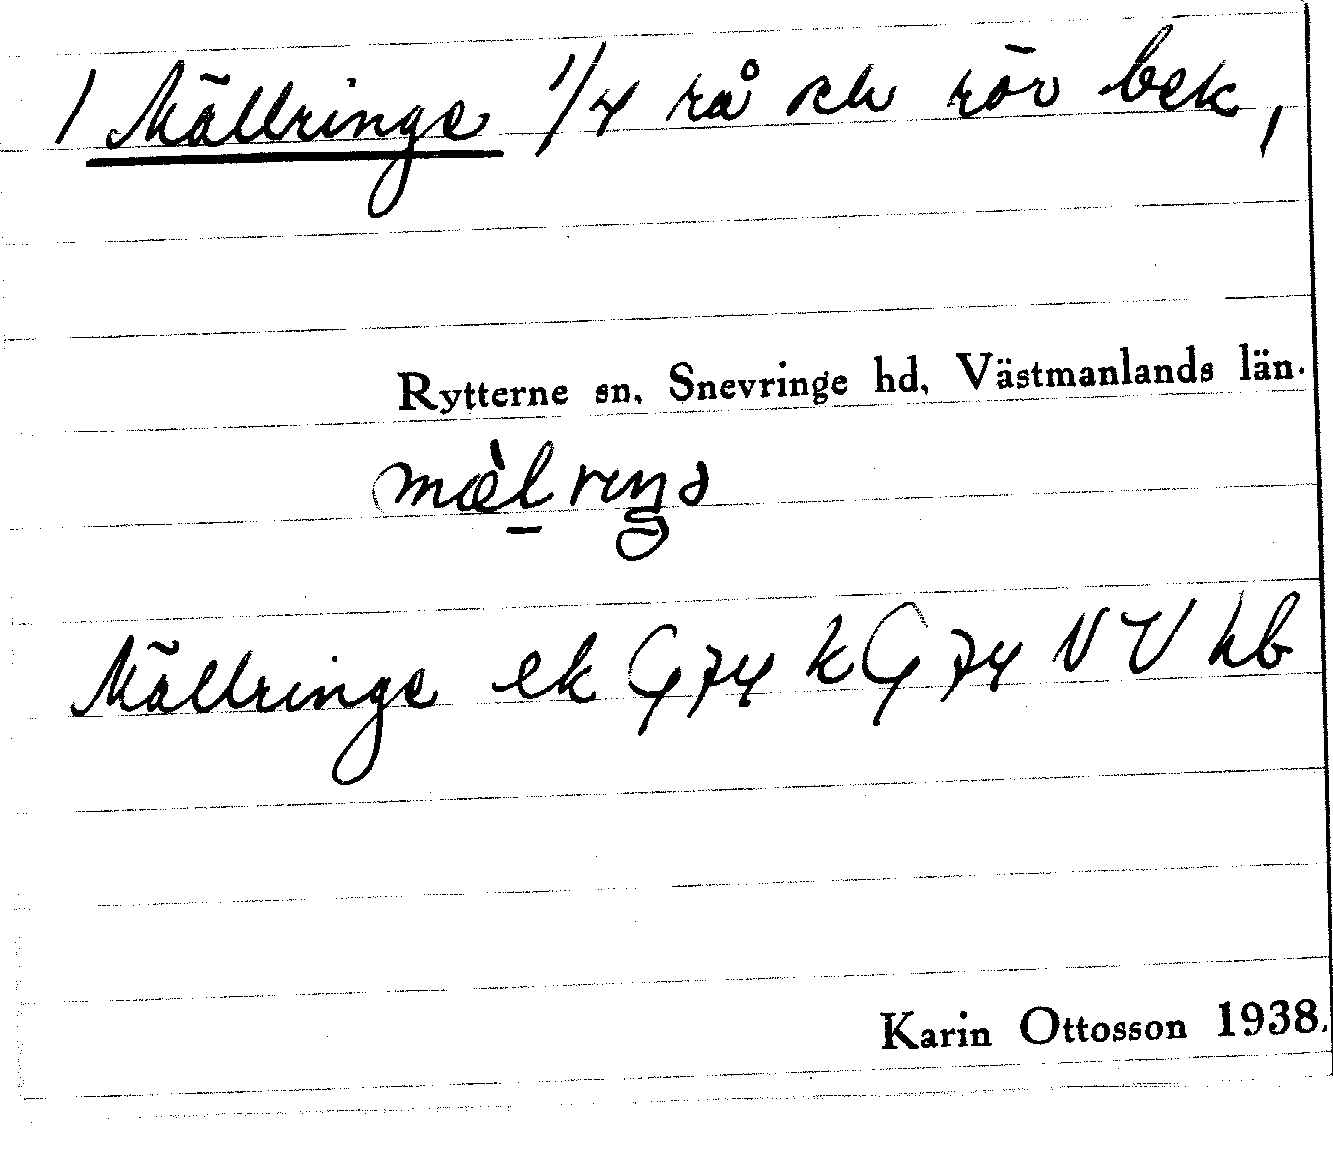 1 Mällringe 1/4 rå och rör bek,
Rytterne sn, Snevringe hd, Västmanlands län.
Mällringe ek G 74 k G 74 NV hb
Karin Ottosson 1938.